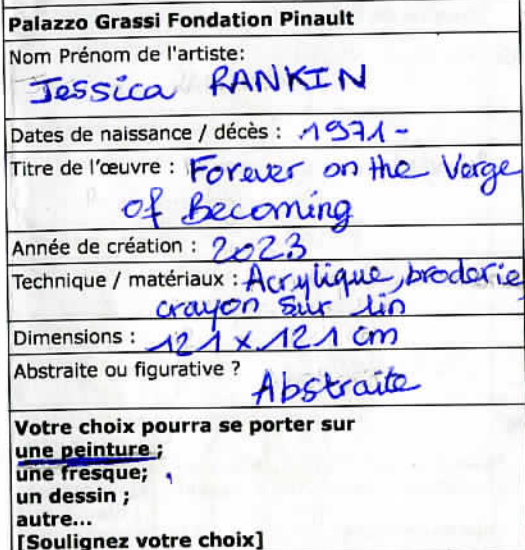 Palazzo Grassi Fondation Pinault
Nom Prénom de l'artiste:
Jessica RANKIN
Dates de naissance / décès : 1971-
Titre de l'œuvre : Forever on the Verge
of Becoming
Année de création : 2023
Technique / matériaux : Acrylique, broderie,
crayon sur lin
Dimensions : 121 x 121 cm
Abstraite ou figurative ?
Abstraite
Votre choix pourra se porter sur
une peinture ;
une fresque;
un dessin ;
autre...
[Soulignez votre choix]